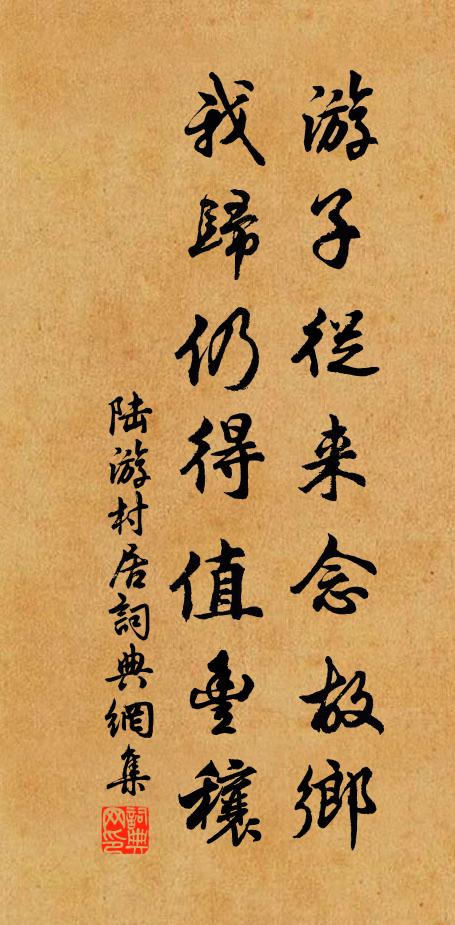 游子從来念故鄉
我歸仍得值豊穰
陸游村居詞典網集
詞典網印